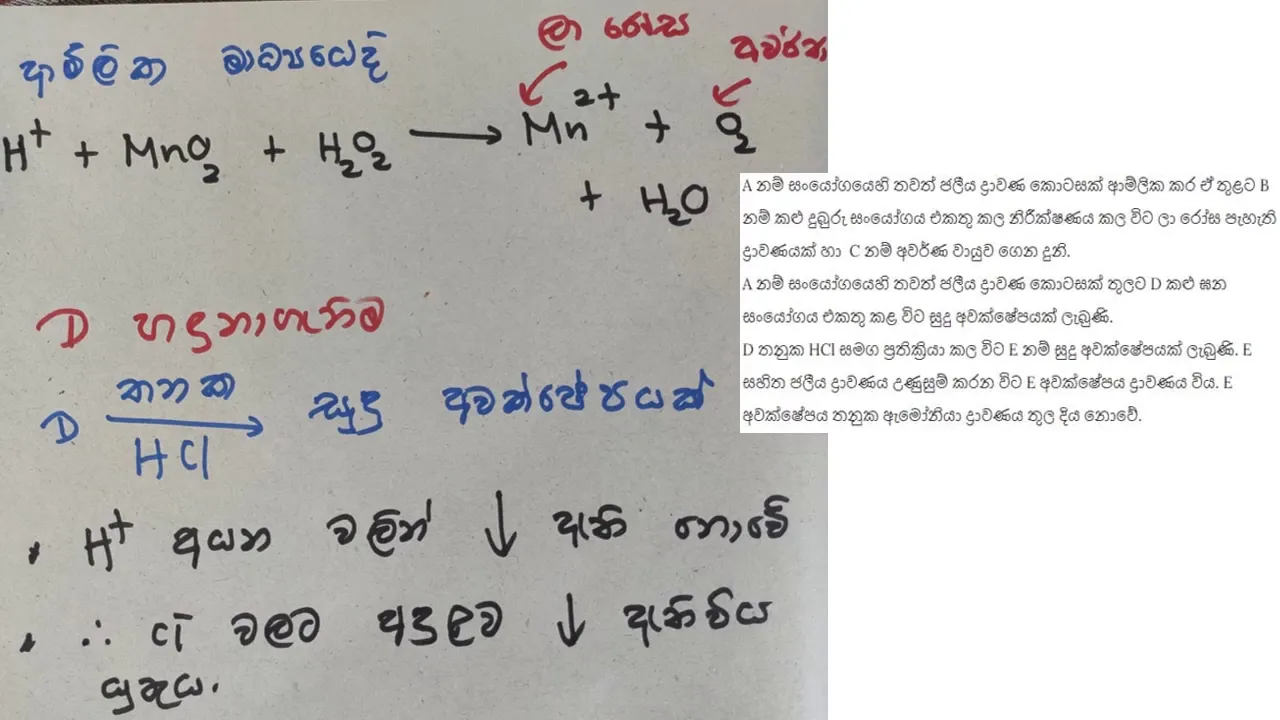 ආම්ලික මාධ්‍යයේදි
ලා රෝස
අවර්ණ
H⁺ + MnO₂ + H₂O₂ ⟶ Mn²⁺ + O₂
+ H₂O
D හඳුනාගැනීම
D තනුක HCl ⟶ සුදු අවක්ෂේපයක්
• H⁺ අයන වලින් ↓ ඇති නොවේ
• ∴ Cl⁻ වලට අදාලව ↓ ඇතිවිය
යුතුය.
A නම් සංයෝගයෙහි තවත් ජලීය ද්‍රාවණ කොටසක් ආම්ලික කර ඒ තුළට B
නම් කළු දුබුරු සංයෝගය එකතු කල නිරීක්ෂණය කල විට ලා රෝස පැහැති
ද්‍රාවණයක් හා C නම් අවර්ණ වායුව ගෙන දුනි.
A නම් සංයෝගයෙහි තවත් ජලීය ද්‍රාවණ කොටසක් තුලට D කළු ඝන
සංයෝගය එකතු කළ විට සුදු අවක්ෂේපයක් ලැබුණි.
D තනුක HCl සමග ප්‍රතික්‍රියා කල විට E නම් සුදු අවක්ෂේපයක් ලැබුණි. E
සහිත ජලීය ද්‍රාවණය උණුසුම් කරන විට E අවක්ෂේපය ද්‍රාවණය විය. E
අවක්ෂේපය තනුක ඇමෝනියා ද්‍රාවණය තුල දිය නොවේ.